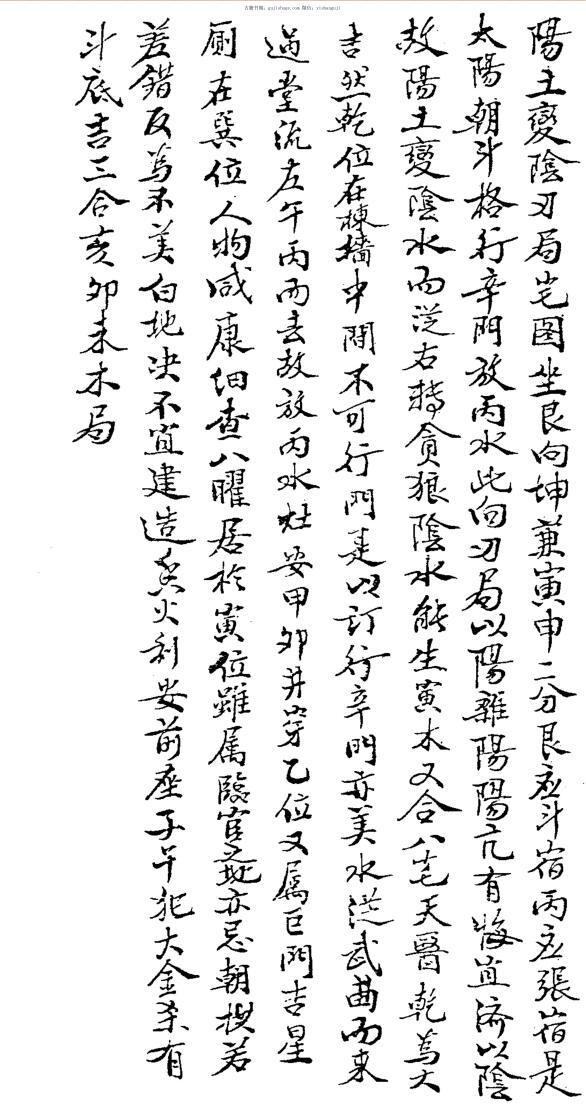 古籍书阁:gujishuge.com 微信:yishanguji
陽土變陰刃局宅圖坐艮向坤兼寅申二分艮应斗宿丙应張宿是
太陽朝斗格行辛門放丙水此向刃局以陽離陽陽亢有悔宜济以陰
故陽土變陰水而從右轉貪狼陰水能生寅木又合八宅天醫乾為大
吉然乾位在棟墻中間不可行門是以訂行辛門亦美水從武曲而來
過堂流左午丙而去故放丙水灶安甲卯井穿乙位又属巨門吉星
厠在巽位人物咸康细查八曜居於寅位雖属臨官之地亦忌朝拱若
差錯反為不美白地决不宜建造香火利安前座子午犯大金杀有
斗底吉三合亥卯未木局